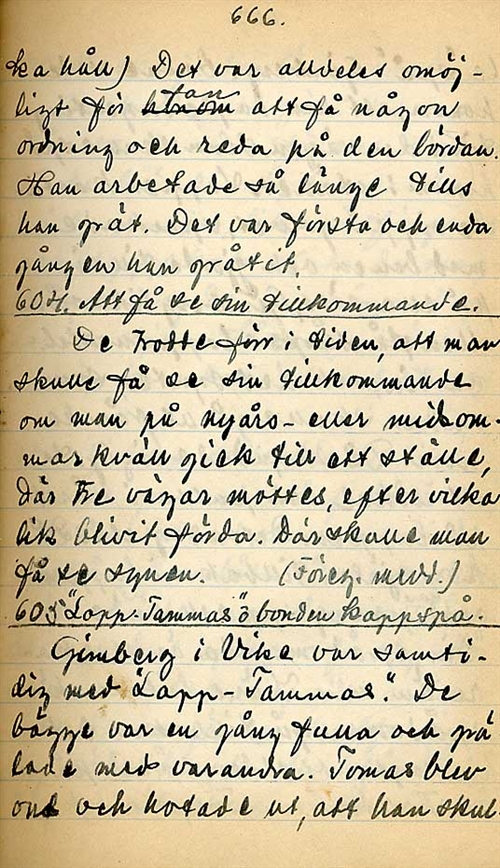 666.
ka håll) Det var alldeles omöj-
ligt för honom tan att få någon
ordning och reda på den bördan.
Han arbetade så länge tills
han grät. Det var första och enda
gången han gråtit.
604. Att få se sin tillkommande.
De trodde förr i tiden, att man
skulle få se sin tillkommande
om man på nyårs- eller midsom-
markväll gick till ett ställe,
där tre vägar möttes, efter vilka
lik blivit förda. Där skulle man
få se synen. (Föreg. medd.)
605 "Lapp-Tammas" o bonden kappspå.
Gimberg i Vike var samti-
dig med "Lapp-Tammas". De
bägge var en gång fulla och grä
lade med varandra. Tomas blev
ond och hotade ut, att han skul-